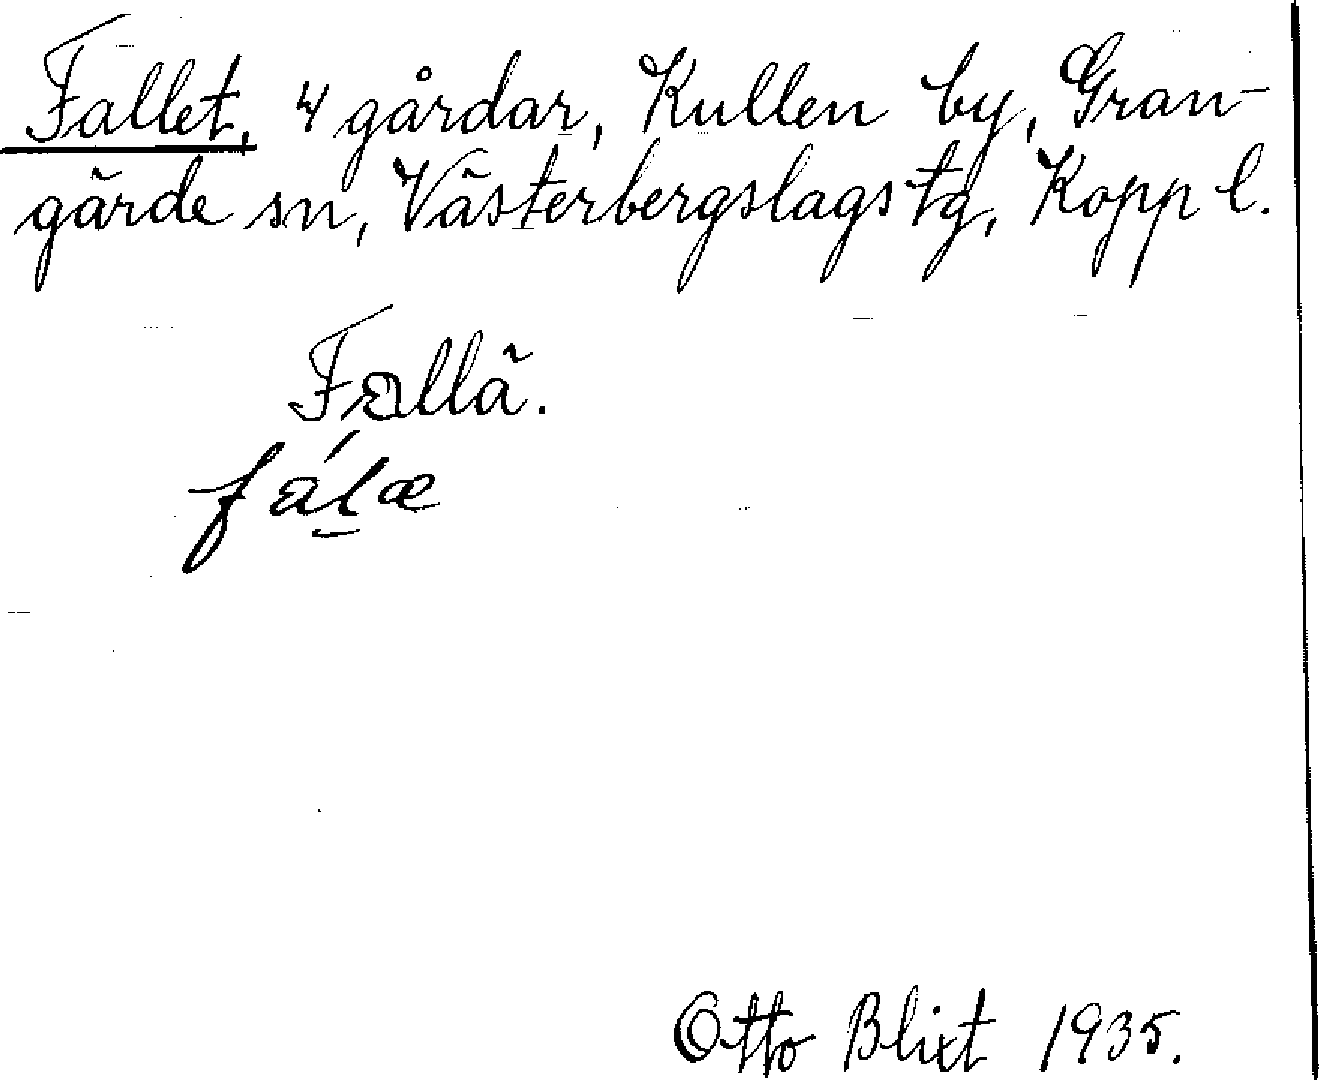 Fallet, 4 gårdar, Kullen by, Gran-
gärde sn, Västerbergslags tg, Kopp l.
Fallä.
fálæ
Otto Blixt 1935.